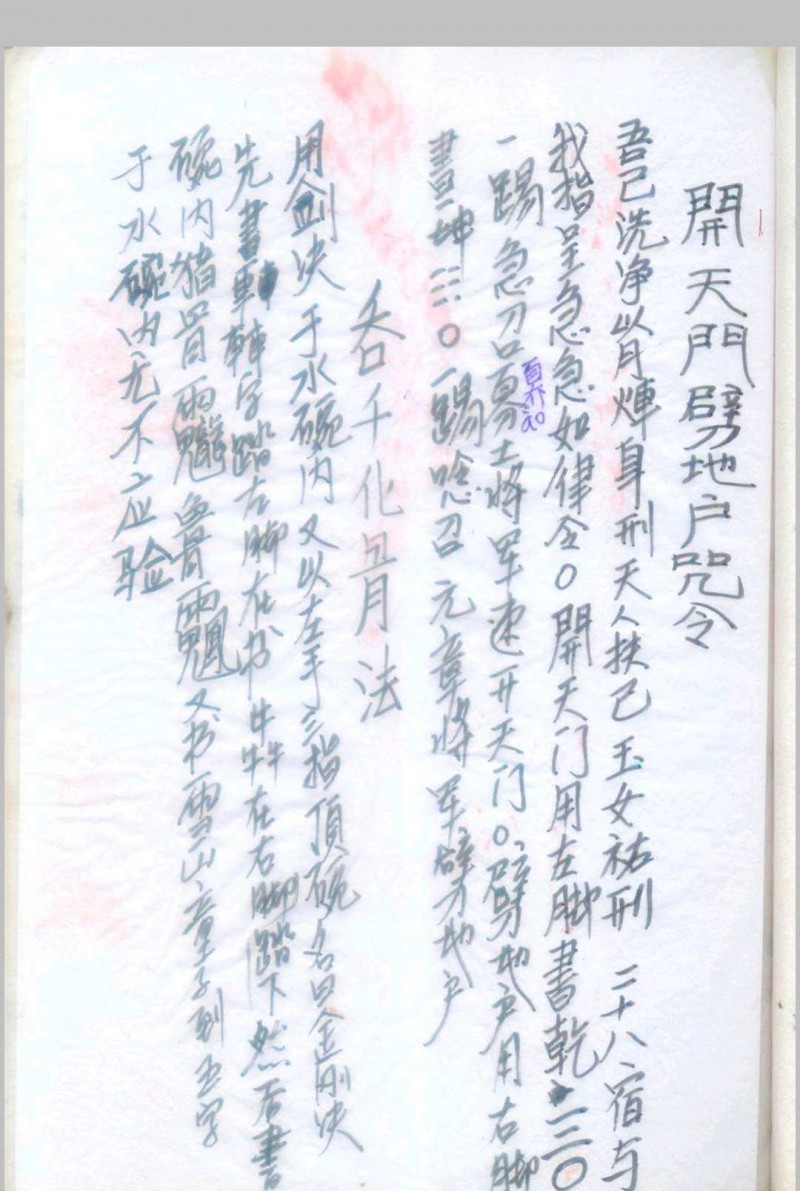 開天門劈地户咒令
吾已洗净以月煇身刑天人扶己玉女祐刑二十八宿与
我指呈急急如律令〇開天门用左脚書乾☰〇
一踢急召夏土將军速开天门〇劈地户用右脚
書坤☷〇一踢唸召元章將军劈地户
吞千化骨法
用剑决于水碗内又以左手三指頂碗名曰金刚决
先書字踏左脚在书牛牪在右脚踏下然后書
碗内猪骨魯骨又书雪山童子到五字
于水碗内无不应验